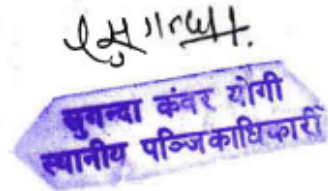 सुगन्दा कंवर योगी
स्थानीय पञ्जिकाधिकारी